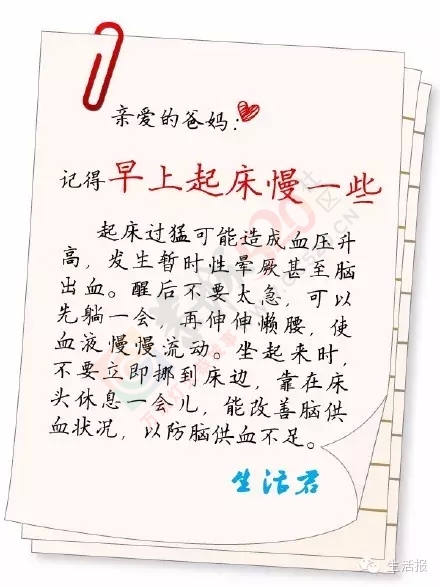 亲爱的爸妈:
记得早上起床慢一些
起床过猛可能造成血压升
高，发生暂时性晕厥甚至脑
出血。醒后不要太急，可以
先躺一会，再伸伸懒腰，使
血液慢慢流动。坐起来时，
不要立即挪到床边，靠在床
头休息一会儿，能改善脑供
血状况，以防脑供血不足。
生活君
生活报